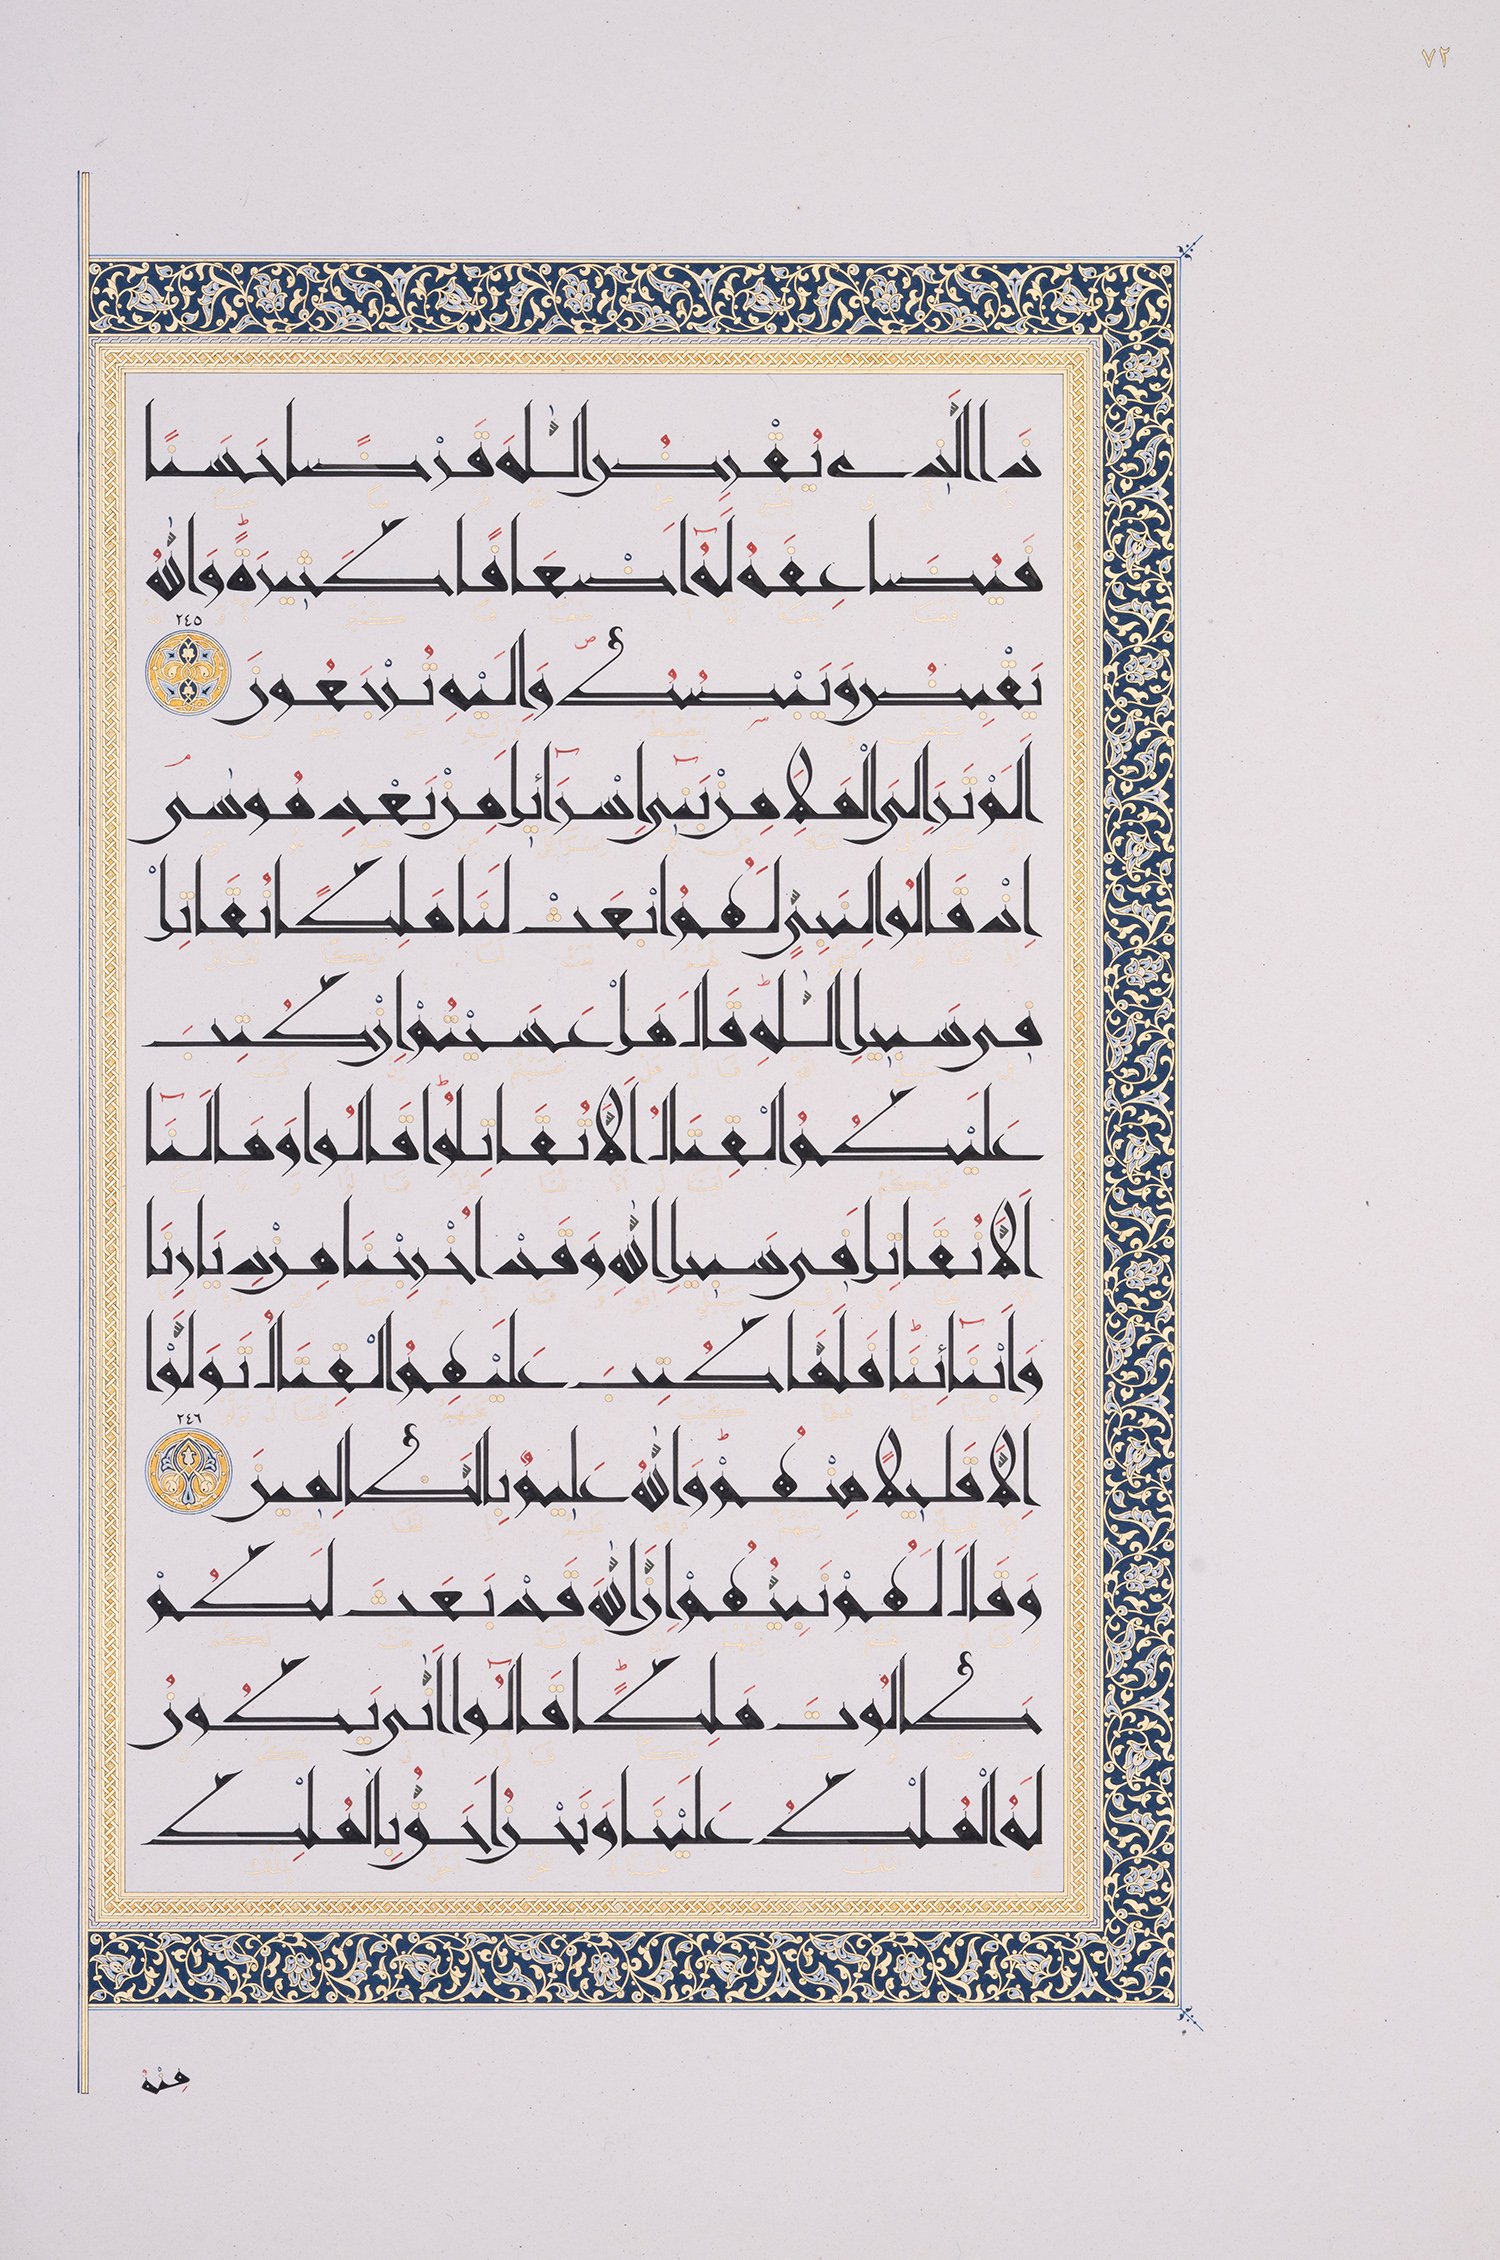 ٧٢
ذَا الَّذِي يُقْرِضُ اللَّهَ قَرْضًا حَسَنًا
فَيُضَاعِفَهُ لَهُ أَضْعَافًا كَثِيرَةً وَاللَّهُ
يَقْبِضُ وَيَبْصُطُ وَإِلَيْهِ تُرْجَعُونَ ٢٤٥
أَلَمْ تَرَ إِلَى الْمَلَإِ مِنْ بَنِي إِسْرَائِيلَ مِنْ بَعْدِ مُوسَى
إِذْ قَالُوا لِنَبِيٍّ لَهُمُ ابْعَثْ لَنَا مَلِكًا نُقَاتِلْ
فِي سَبِيلِ اللَّهِ قَالَ هَلْ عَسَيْتُمْ إِنْ كُتِبَ
عَلَيْكُمُ الْقِتَالُ أَلَّا تُقَاتِلُوا قَالُوا وَمَا لَنَا
أَلَّا نُقَاتِلَ فِي سَبِيلِ اللَّهِ وَقَدْ أُخْرِجْنَا مِنْ دِيَارِنَا
وَأَبْنَائِنَا فَلَمَّا كُتِبَ عَلَيْهِمُ الْقِتَالُ تَوَلَّوْا
إِلَّا قَلِيلًا مِنْهُمْ وَاللَّهُ عَلِيمٌ بِالظَّالِمِينَ ٢٤٦
وَقَالَ لَهُمْ نَبِيُّهُمْ إِنَّ اللَّهَ قَدْ بَعَثَ لَكُمْ
طَالُوتَ مَلِكًا قَالُوا أَنَّى يَكُونُ
لَهُ الْمُلْكُ عَلَيْنَا وَنَحْنُ أَحَقُّ بِالْمُلْكِ
مِنْهُ